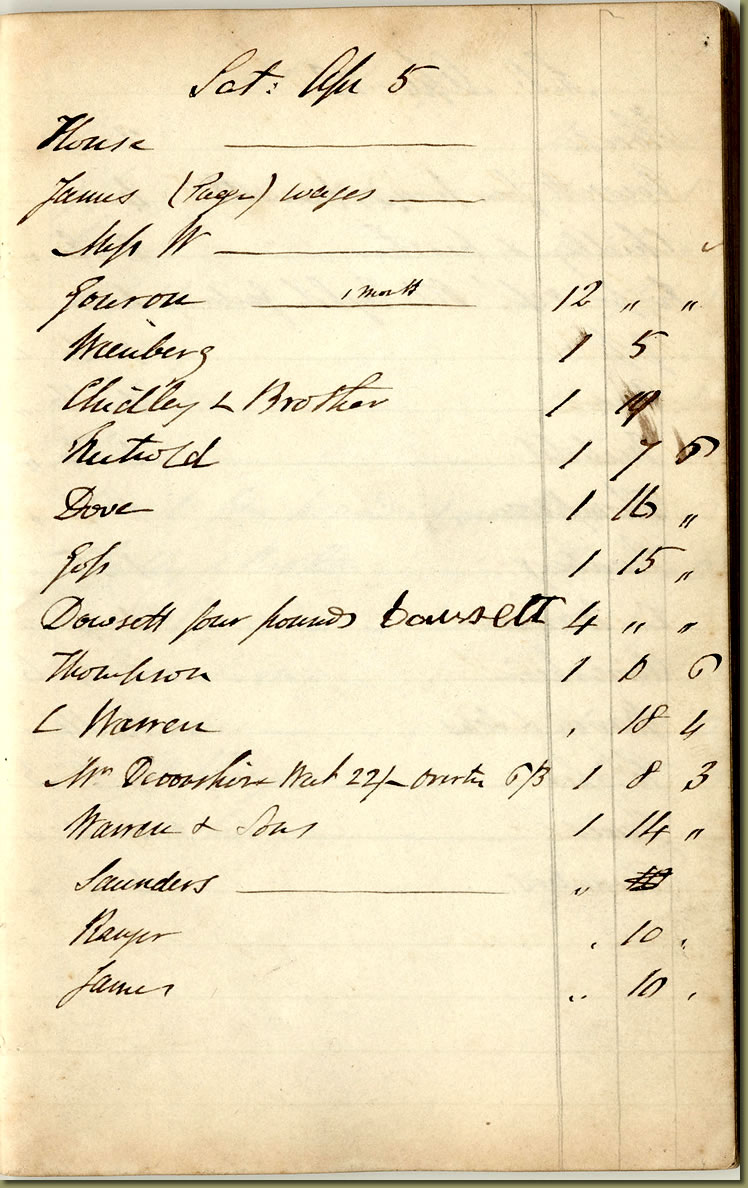 Sat: Apr 5
House
James (Page) wages
Miss W
Gouron 1 month 12 " "
Weinberg 1 5
Chidley & Brother 1 19
Rutwold 1 7 6
Dove 1 16 "
Goss 1 15 "
Dowsett four pounds Dowsett 4 " "
Thompson 1 6
L Warren . 18 4
Mrs Devonshire Week 22/- Overtie 6/3 1 8 3
Warren & Sons 1 14 "
Saunders "
Ranger . 10 .
James .. 10 .